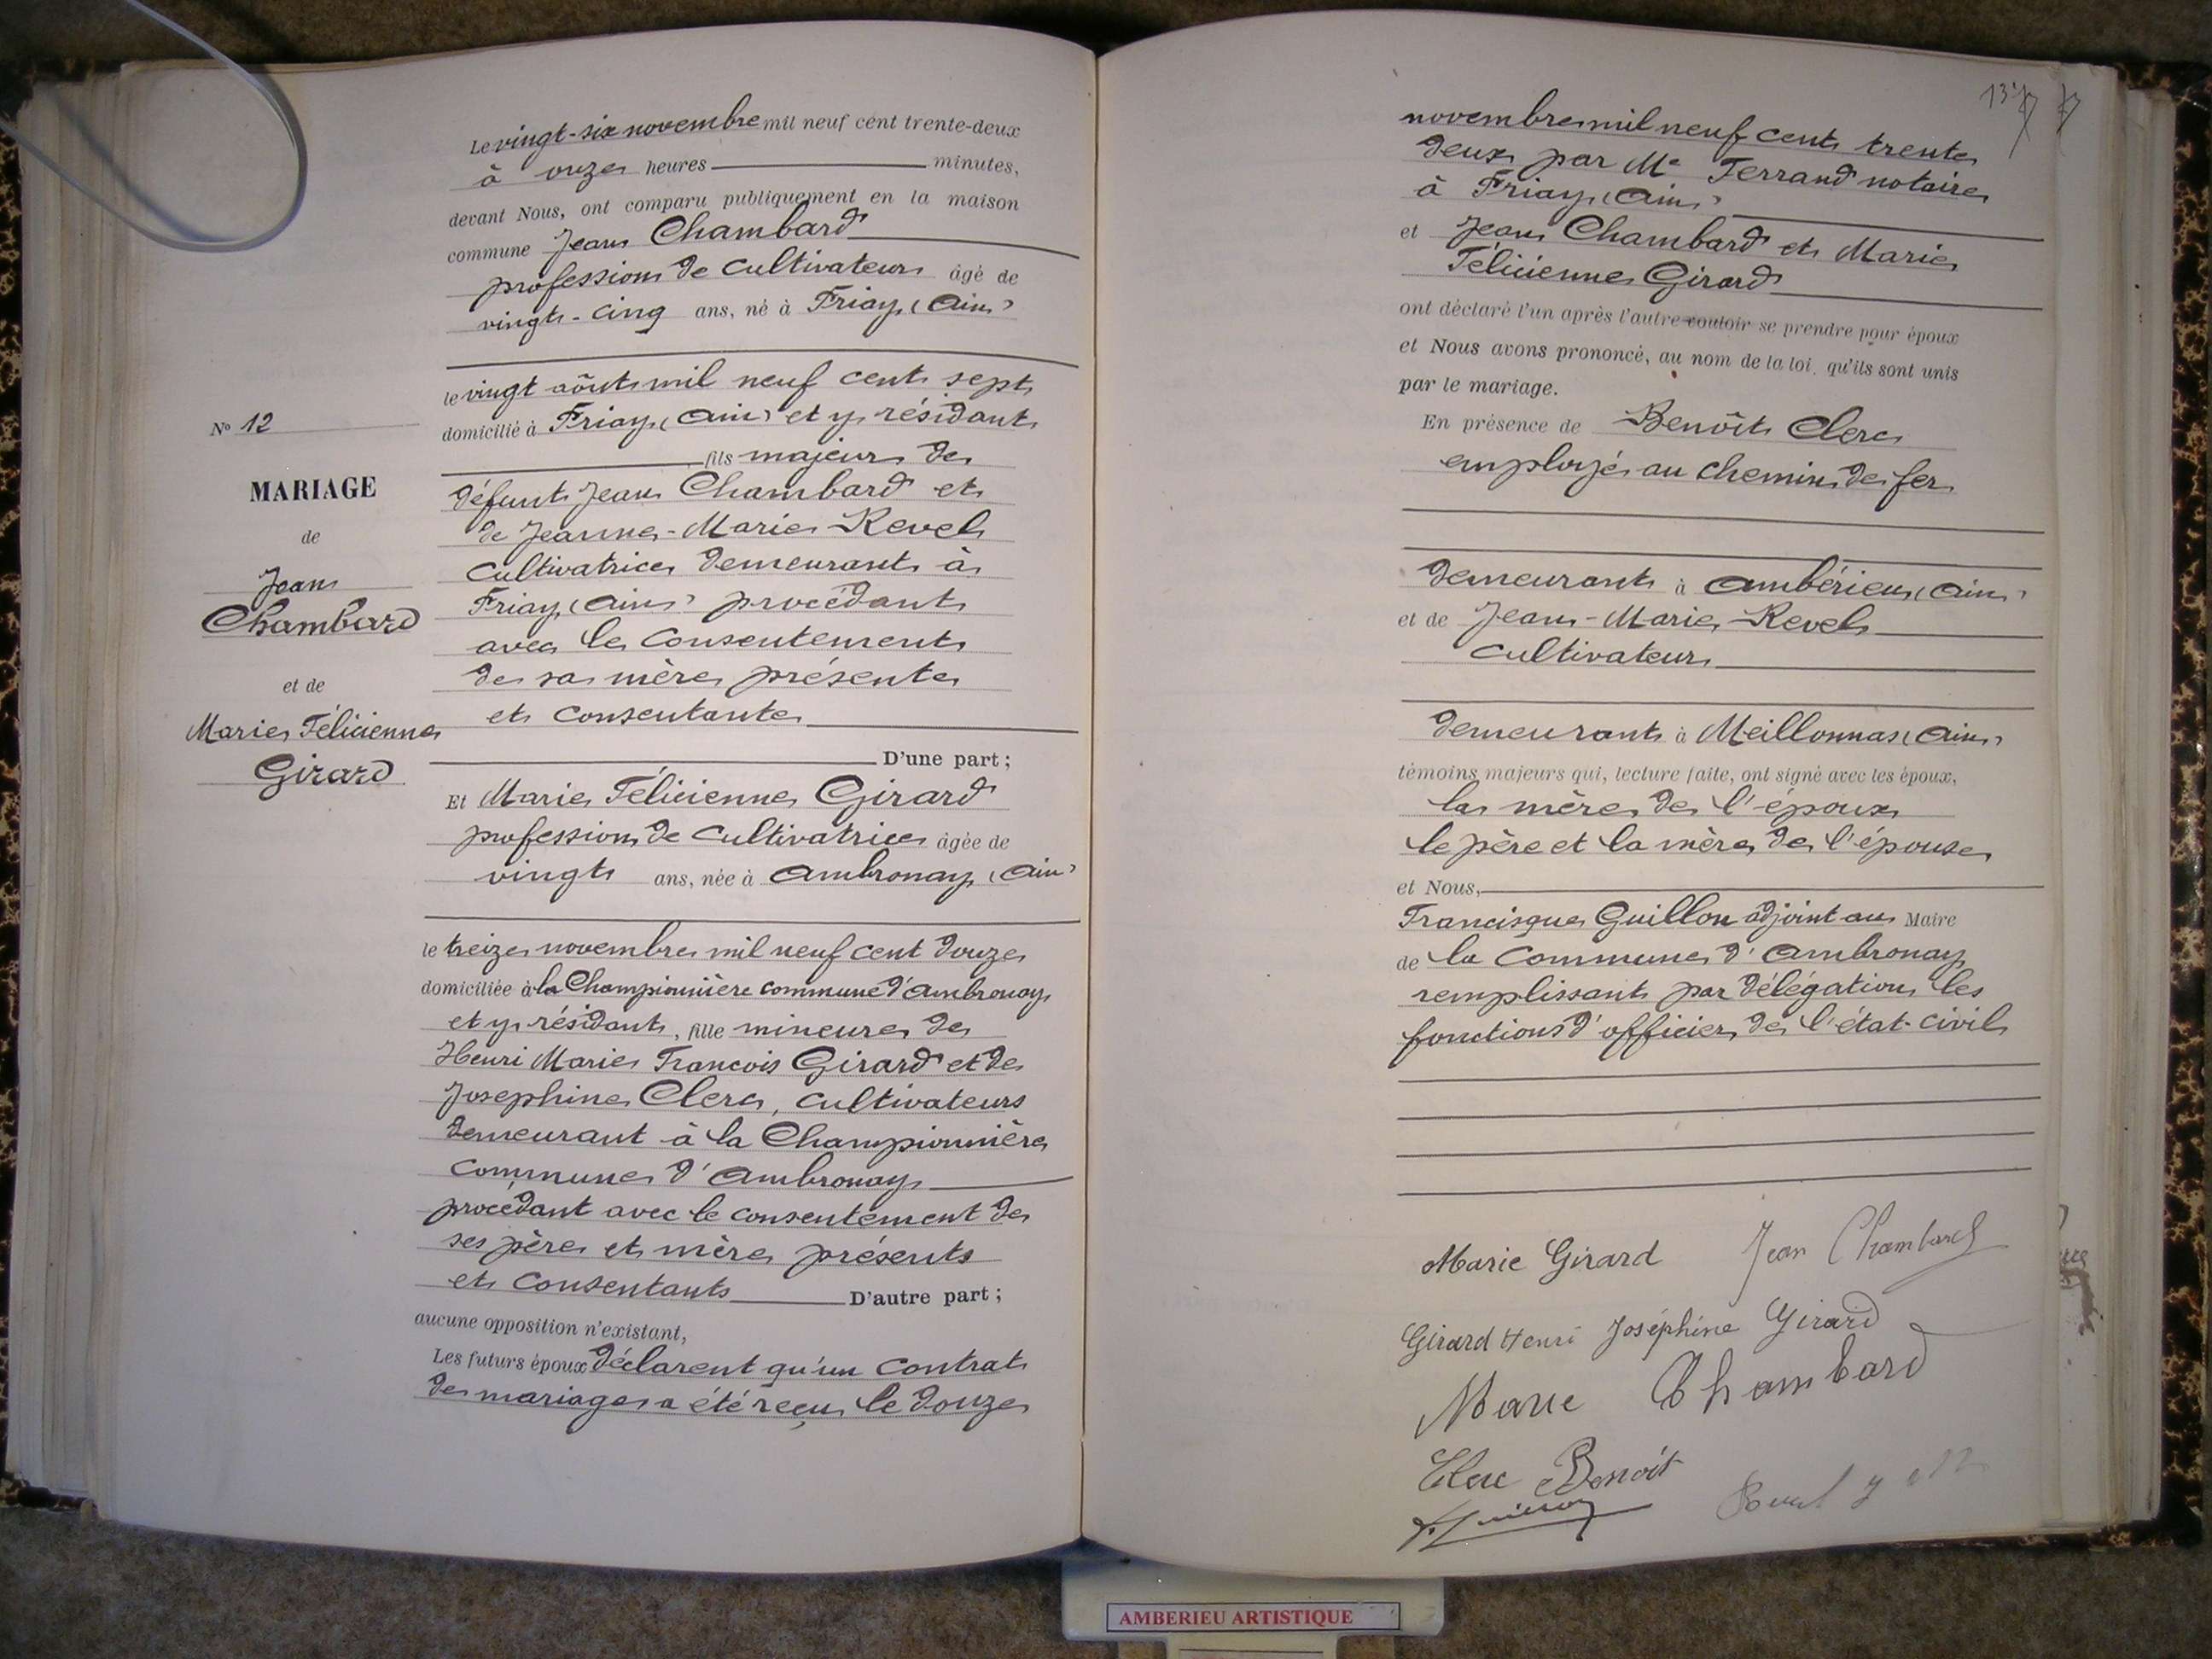 N° 12
MARIAGE
de
Jean
Chambard
et de
Marie Félicienne
Girard
Le vingt-six novembre mil neuf cent trente-deux
à onze heures minutes,
devant Nous, ont comparu publiquement en la maison
commune Jean Chambard
profession de cultivateur âgé de
vingt-cinq ans, né à Priay (Ain)
le vingt août mil neuf cent sept
domicilié à Priay (Ain) et y résidant
fils majeur de
défunt Jean Chambard et
de Jeanne-Marie Revel
cultivatrice demeurant à
Priay (Ain) procédant
avec le consentement
de sa mère présente
et consentante
D'une part ;
Et Marie Félicienne Girard
profession de cultivatrice âgée de
vingt ans, née à Ambronay (Ain)
le treize novembre mil neuf cent douze
domiciliée à la Championnière commune d'Ambronay
et y résidant, fille mineure de
Henri Marie François Girard et de
Josephine Clerc, cultivateurs
demeurant à la Championnière
commune d'Ambronay
procédant avec le consentement de
ses père et mère présents
et consentants D'autre part ;
aucune opposition n'existant,
Les futurs époux déclarent qu'un contrat
de mariage a été reçu le douze
137
novembre mil neuf cent trente
deux par Me Ferrand notaire
à Priay (Ain)
et Jean Chambard et Marie
Félicienne Girard
ont déclaré l'un après l'autre vouloir se prendre pour époux
et Nous avons prononcé, au nom de la loi, qu'ils sont unis
par le mariage.
En présence de Benoît Clerc
employé au chemin de fer
demeurant à Ambérieu (Ain)
et de Jean-Marie Revel
cultivateur
demeurant à Meillonnas (Ain)
témoins majeurs qui, lecture faite, ont signé avec les époux,
la mère de l'époux
le père et la mère de l'épouse
et Nous,
Francisque Guillon adjoint au Maire
de la Commune d'Ambronay
remplissant par délégation les
fonctions d'officier de l'état-civil
Marie Girard Jean Chambard
Girard Henri Joséphine Girard
Marie Chambard
Clerc Benoît
AMBERIEU ARTISTIQUE